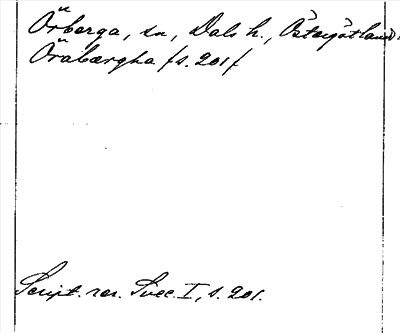 Örberga, sn, Dals h., Östergötland.
Örabærgha /s. 201/
Script. rer. Svec. I, s. 201.